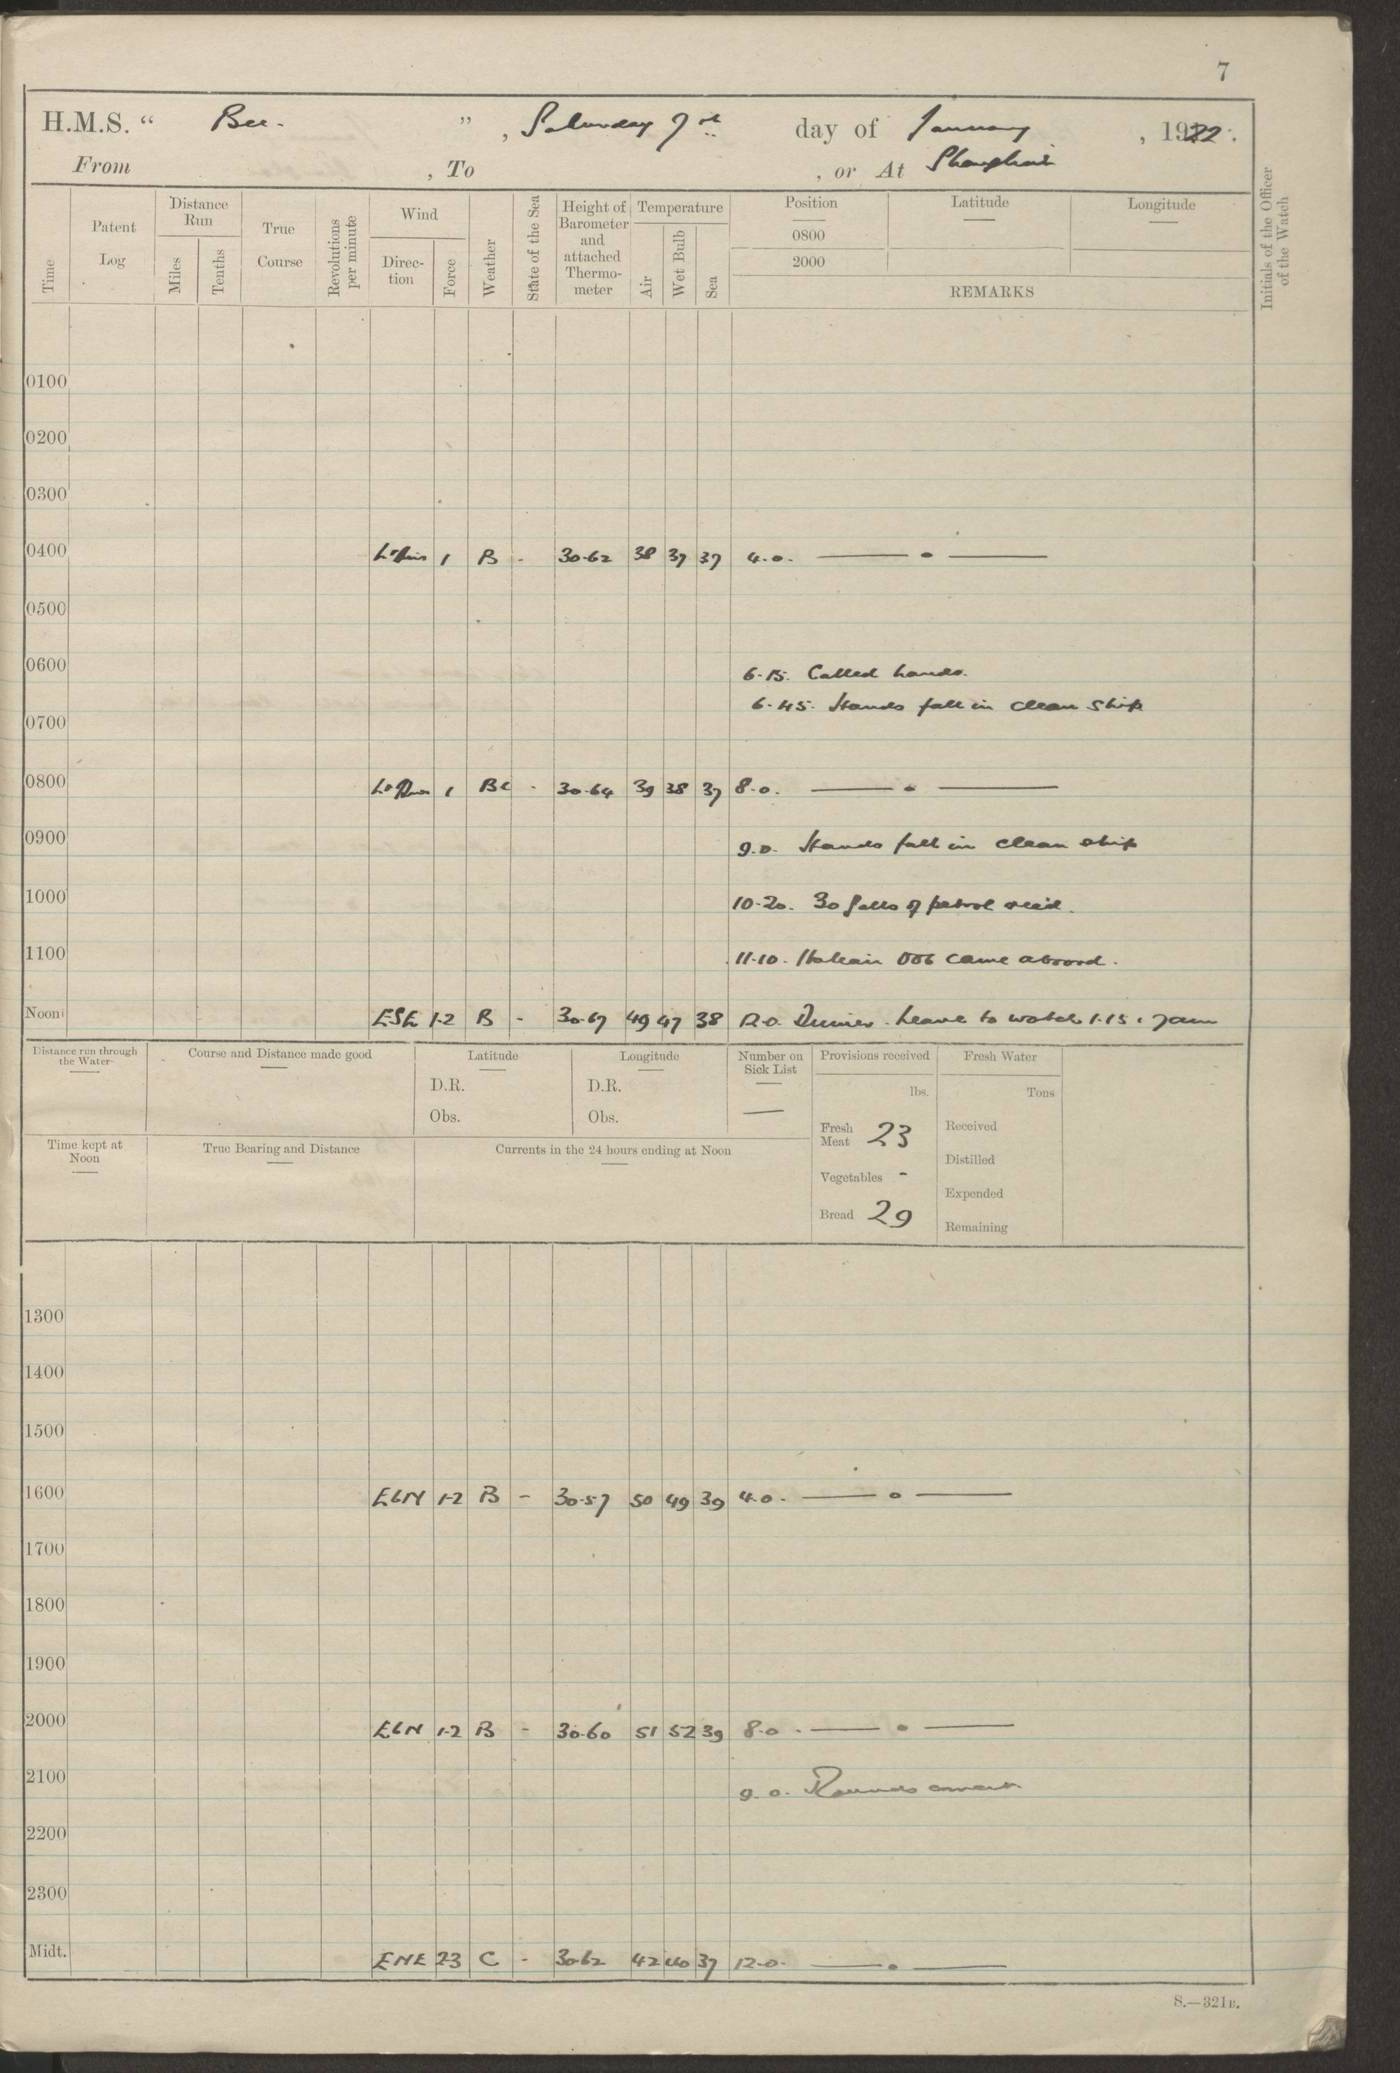 7
H.M.S. " Bee. " , Saturday 7th day of January , 1922.
From , To , or At Shanghai
Time
Patent Log
Distance Run
Miles
Tenths
True Course
Revolutions per minute
Wind
Direc-tion
Force
Weather
State of the Sea
Height of Barometer and attached Thermo-meter
Temperature
Air
Wet Bulb
Sea
Position
0800
2000
Latitude
Longitude
REMARKS
Initials of the Officer of the Watch
0100
0200
0300
0400 1 B - 30.62 38 37 37 4.0. — • —
0500
0600
6.15. Called hands.
6.45. Hands fall in clean ship
0700
0800 1 BC - 30.64 39 38 37 8.0. — • —
0900
9.0. Hands fall in clean ship
1000
10.20. 30 galls of petrol recd.
1100
11.10. Italian OOG came aboard.
Noon ESE 1-2 B - 30.67 49 47 38 12.0. Dinner. Leave to watch 1.15 . 7am
Distance run through the Water
Course and Distance made good
Latitude
D.R.
Obs.
Longitude
D.R.
Obs.
Number on Sick List
—
Provisions received
lbs.
Fresh Meat 23
Vegetables -
Bread 29
Fresh Water
Tons
Received
Distilled
Expended
Remaining
Time kept at Noon
True Bearing and Distance
Currents in the 24 hours ending at Noon
1300
1400
1500
1600 EbN 1-2 B - 30.57 50 49 39 4.0. — • —
1700
1800
1900
2000 EbN 1-2 B - 30.60 51 52 39 8.0. — • —
2100
9.0. Rounds correct.
2200
2300
Midt. ENE 2-3 C - 30.62 42 40 37 12.0. — • —
S.—321B.